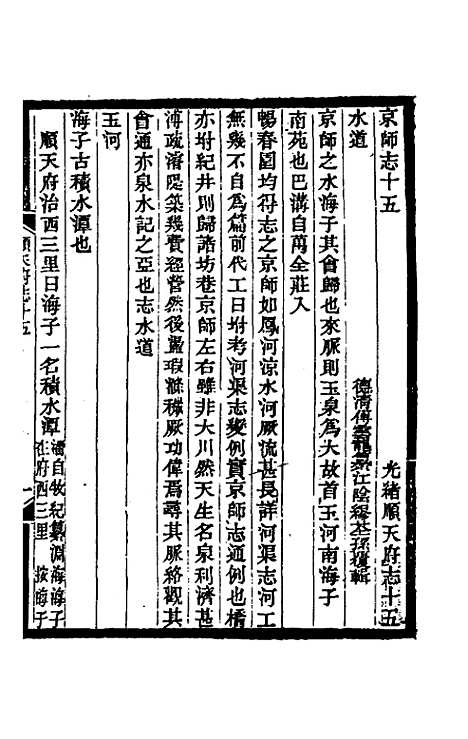 京師志十五　光緒順天府志十五
水道　德清傅雲龍纂江陰繆荃孫復輯
京師之水海子其會歸也來脈則玉泉爲大故首玉河南海子
南苑也巴溝自萬全莊入
暢春園均得志之京師如鳳河涼水河厥流甚長詳河渠志河工
無幾不自爲篇前代工日坿考河渠志變例實京師志通例也橋
亦坿紀井則歸諸坊巷京師左右雖非大川然天生名泉利濟甚
溥疏濬隄築幾費經營然後蠲瑕滌穢厥功偉焉尋其脈絡觀其
會通亦泉水記之亞也志水道
玉河
海子古積水潭也
順天府治西三里日海子一名積水潭潘自牧紀纂淵海海子
在府西三里　按海子
順天府志十五　一